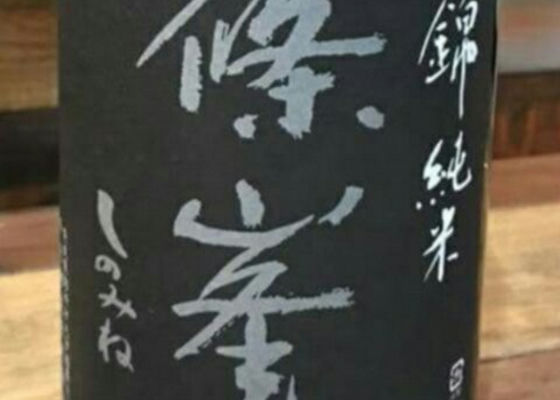 錦 純米
篠峯
しのみね